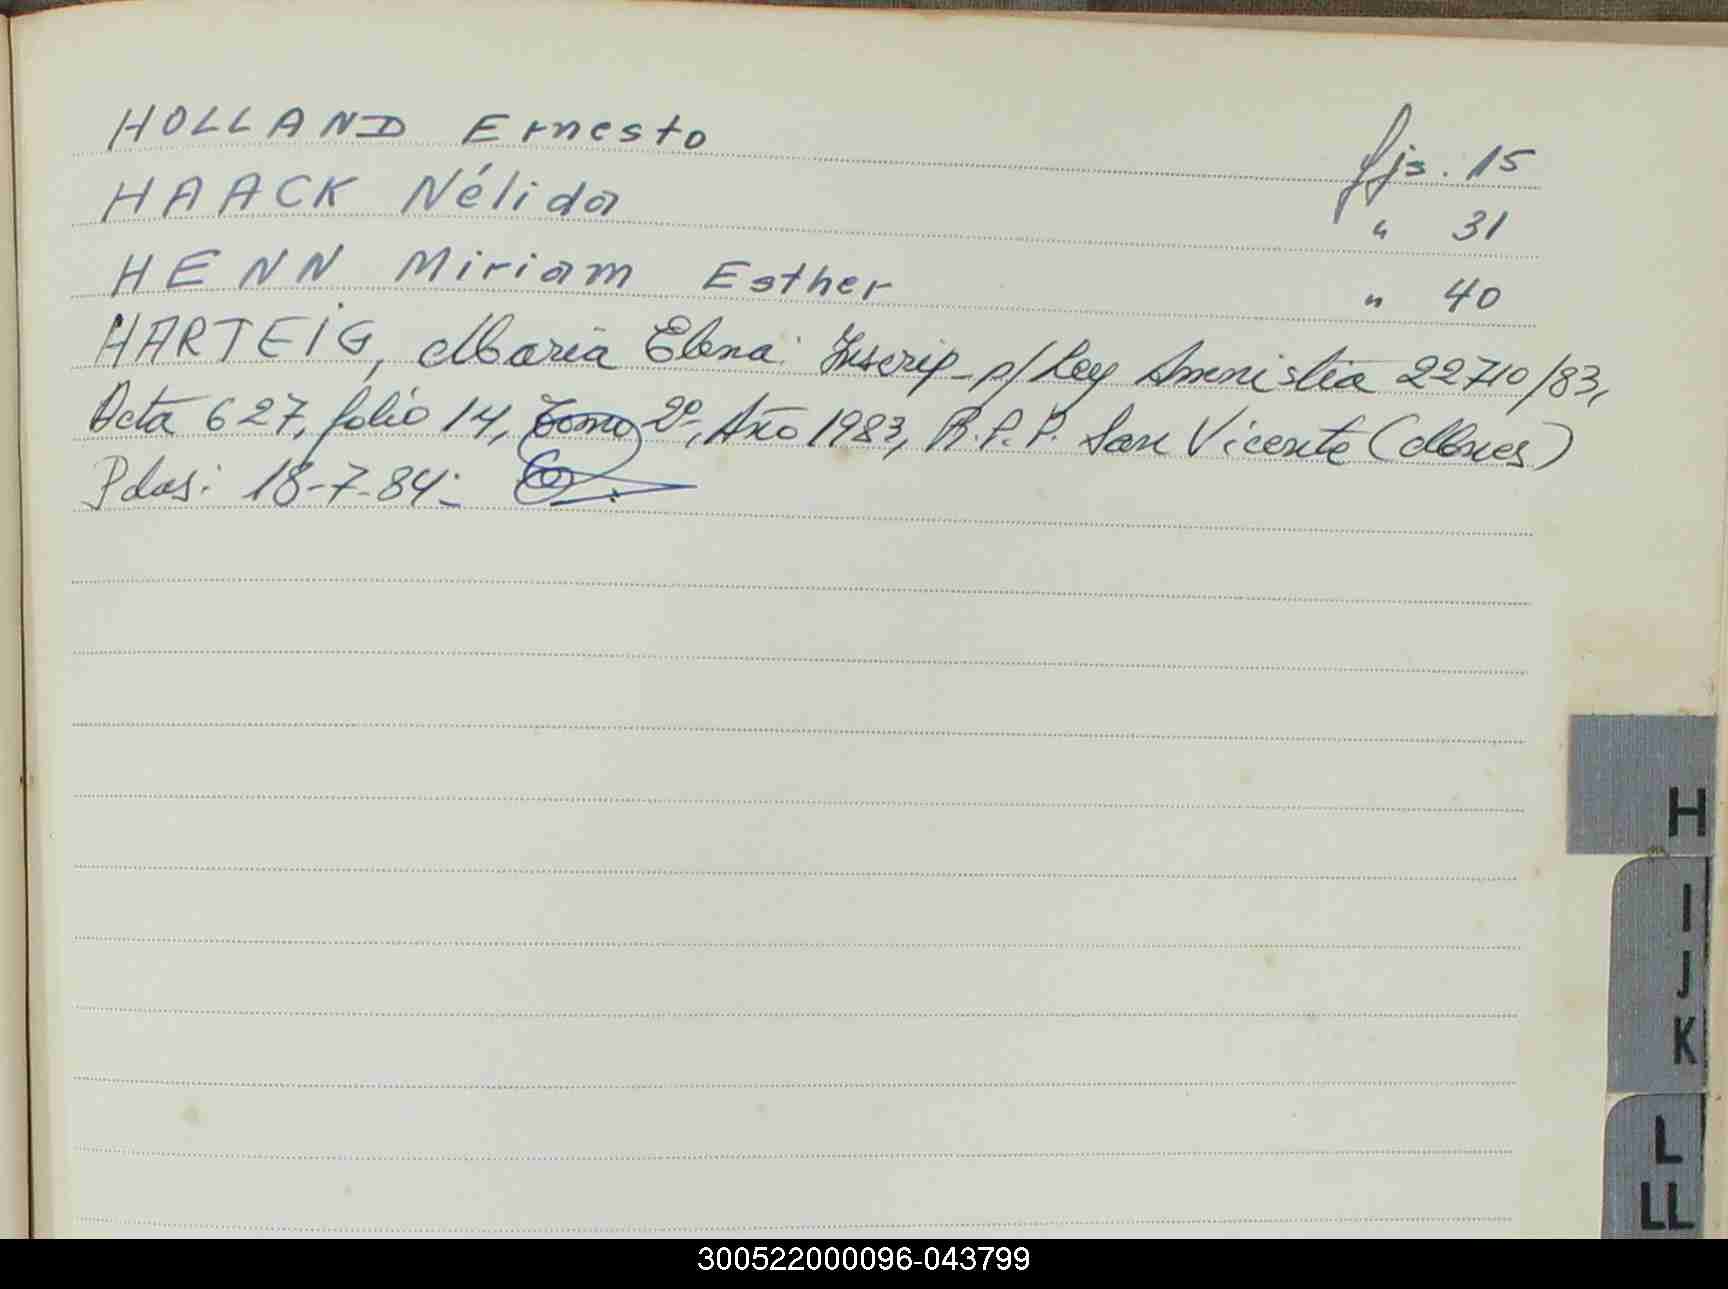 HOLLAND Ernesto fjs. 15
HAACK Nélida " 31
HENN Miriam Esther " 40
HARTEIG, María Elena: Inscrip. p/ Ley Amnistía 22710/83,
Acta 627, folio 14, Tomo 2º, Año 1983, R.P.P. San Vicente (Mnes)
Pdas: 18-7-84.-
H
I
J
K
L
LL
300522000096-043799